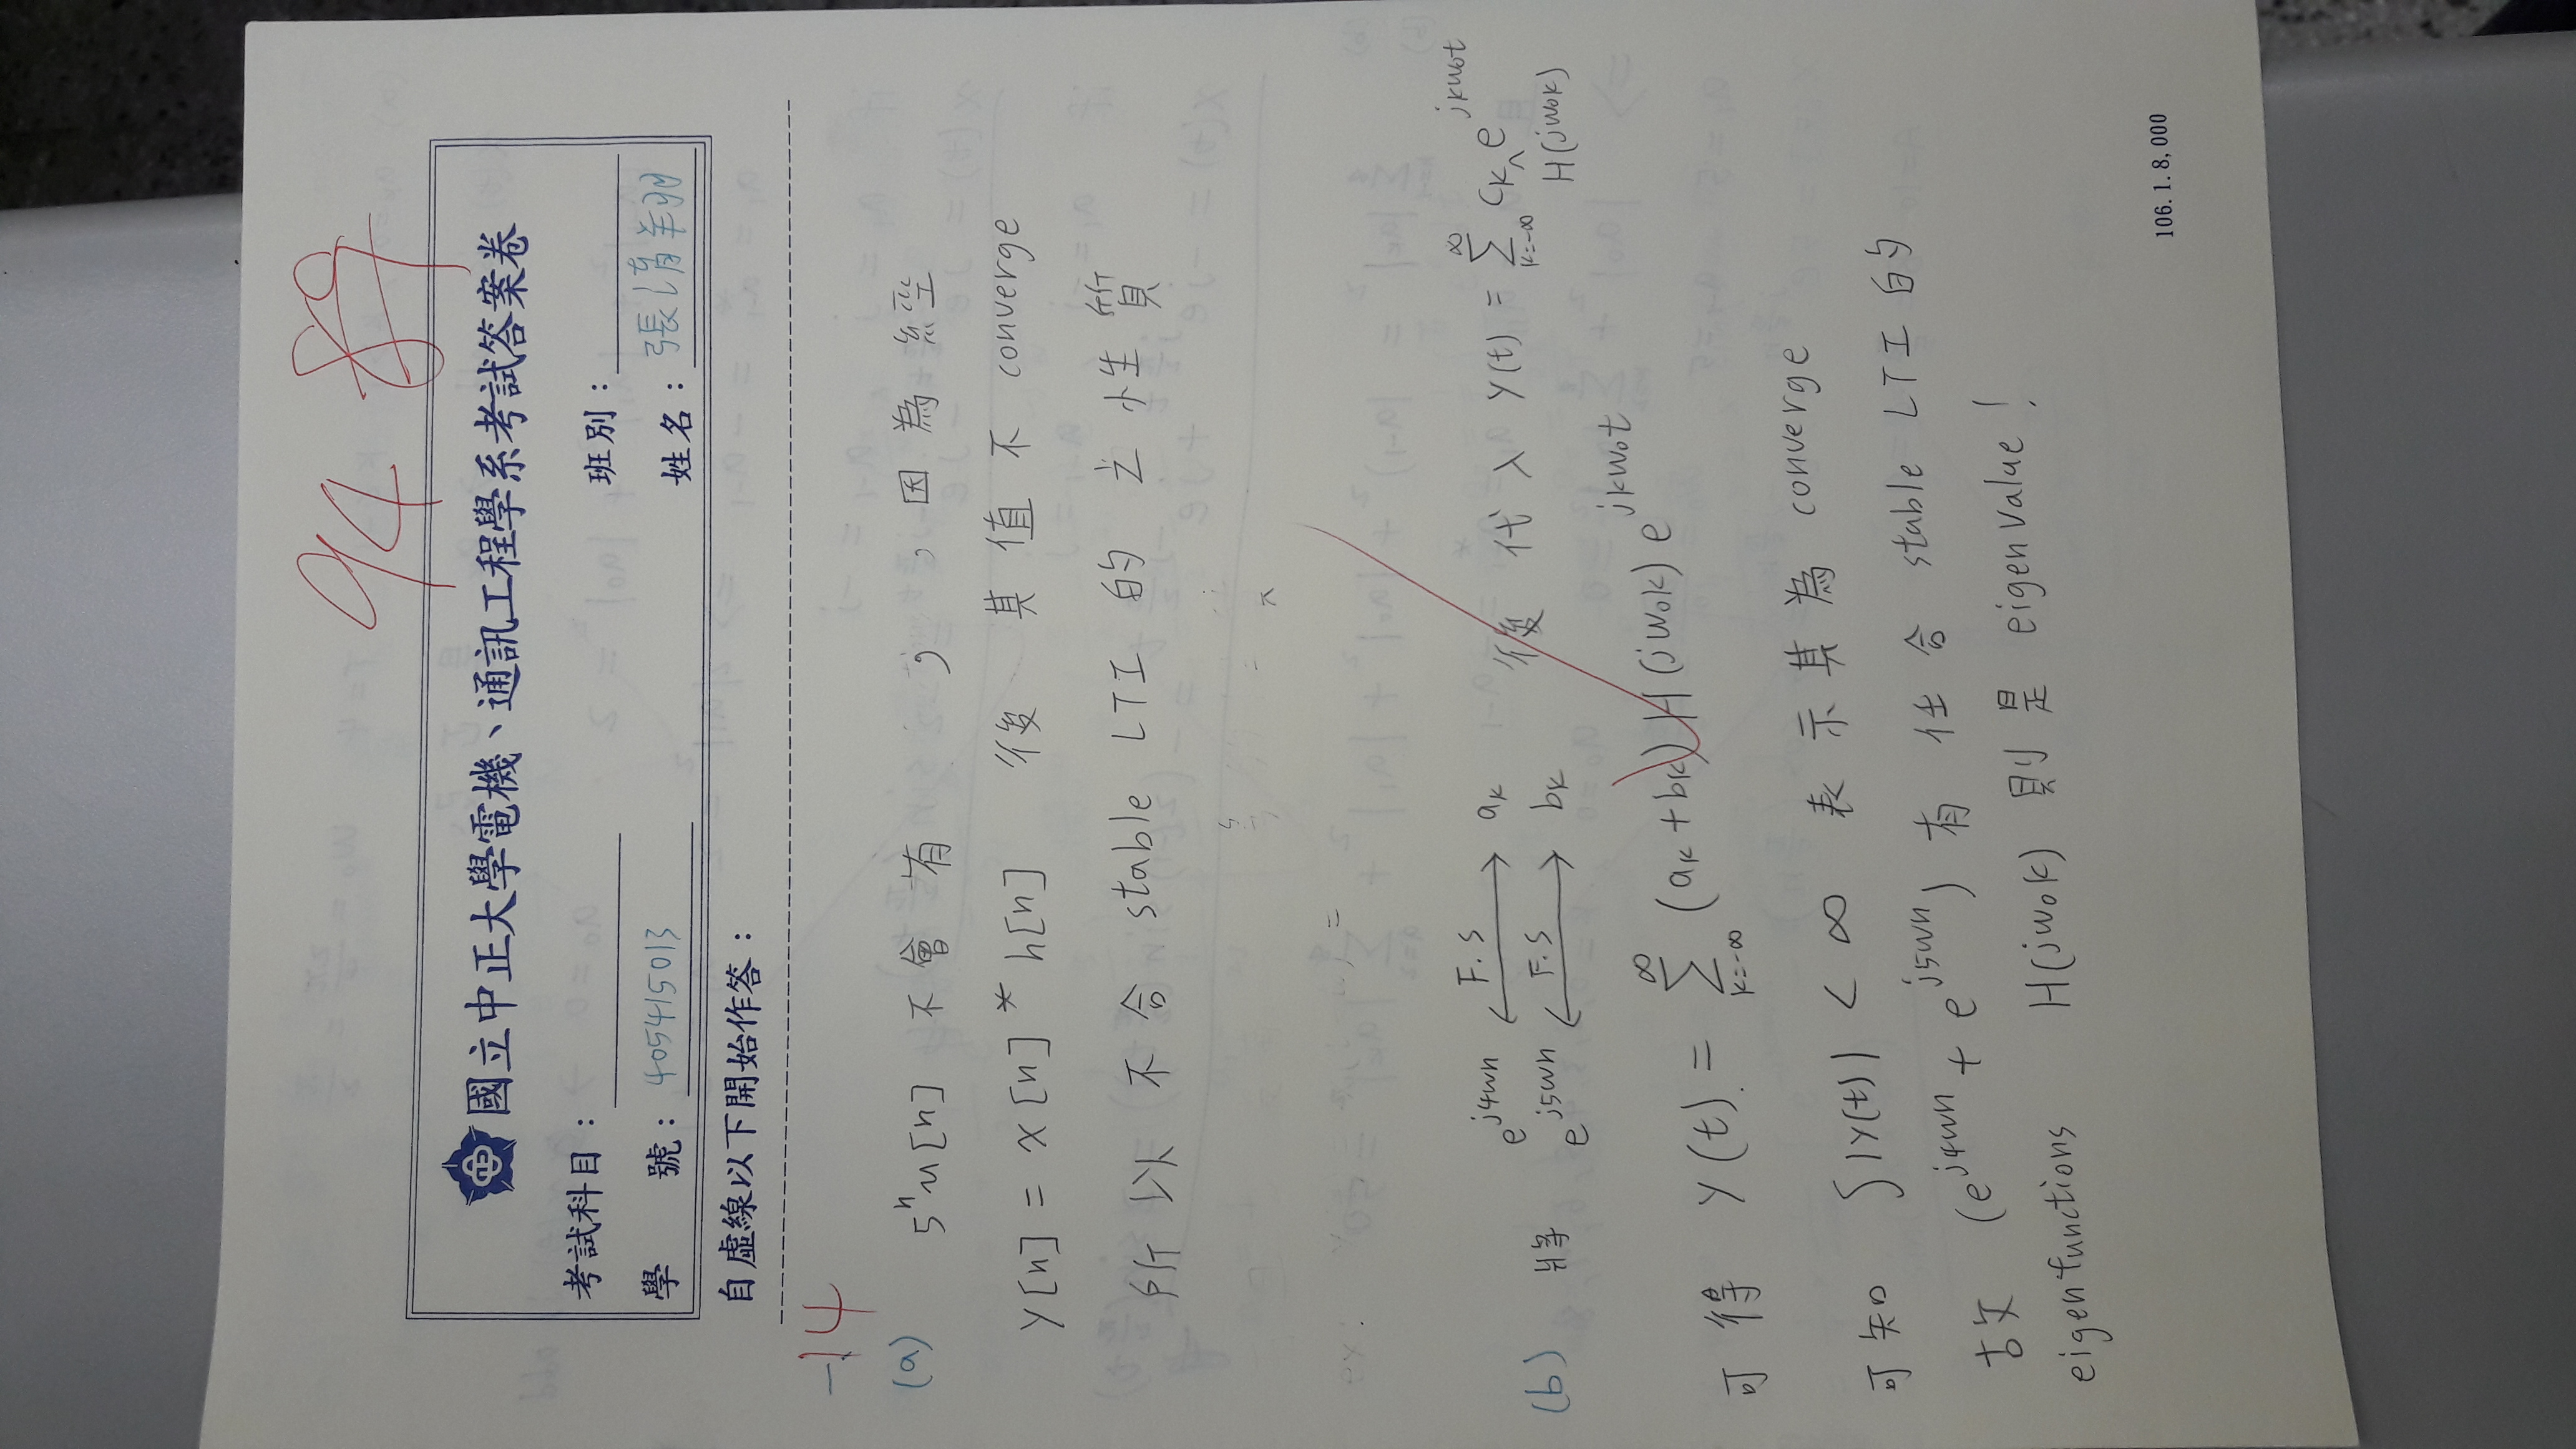 94 89
國立中正大學電機、通訊工程學系考試答案卷
考試科目：
班別：
學 號：405415013
姓名：張
自虛線以下開始作答：
-14
(a) 5ⁿu[n] 不會有 ，因為經
y[n] = x[n] * h[n] 後 其值不 converge
所以不合 stable LTI 的 之性質
(b) 將 e^{j4wn} ⟷ F.S aₖ
e^{j5wn} ⟷ F.S bₖ
後代入 y(t) = ∑_{k=-∞}^{∞} cₖ H(jw₀k) e^{jkw₀t}
可得 y(t) = ∑_{k=-∞}^{∞} (aₖ + bₖ) H(jw₀k) e^{jkw₀t}
可知 ∫|y(t)| < ∞ 表示其為 converge
故 (e^{j4wn} + e^{j5wn}) 有任合 stable LTI 的
eigenfunctions H(jw₀k) 則是 eigenvalue!
106.1.8,000